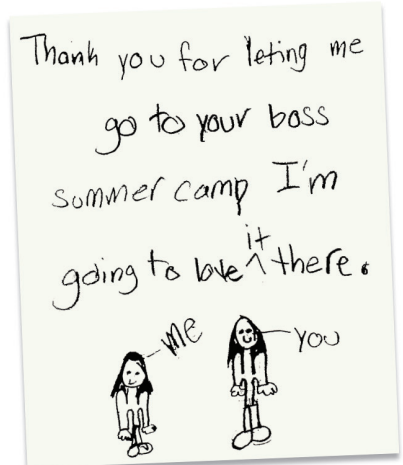 Thank you for leting me
go to your boss
summer camp I'm
going to love it there.
me
you